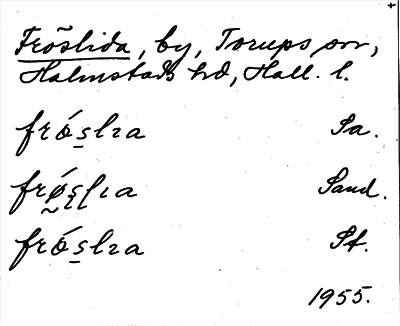 Fröslida, by, Torups sn,
Halmstads hd, Hall. l.
frǿs̲lıa Sa.
frǿ̰s̨l̨ıa Sand.
frǿs̲lıa St.
1955.